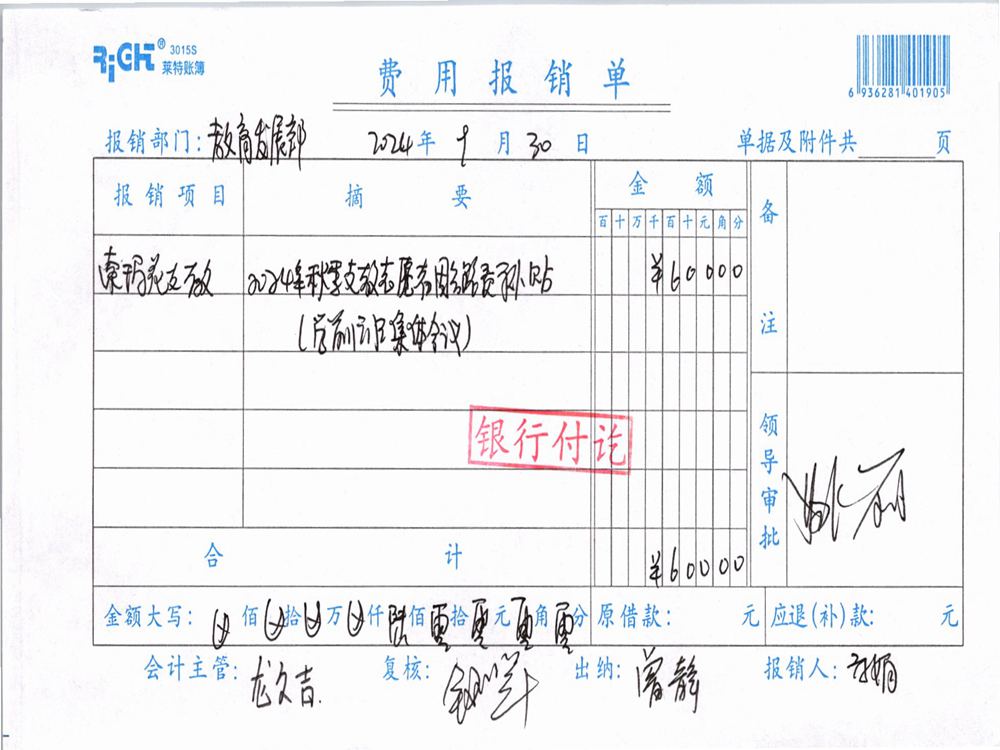 RiGHT® 3015S
莱特账簿
费用报销单
6 936281 401905
报销部门：教育发展部 2024年9月30日 单据及附件共 页
报销项目 摘要 金额 备注
百十万千百十元角分
索玛花支教 2024年秋季支教志愿者团队路费补贴 ¥60000
(学前 集体会议)
银行付讫
领导审批
合计 ¥60000
金额大写： 佰 拾 万 仟 陆佰 零拾 零元 零角 零分 原借款： 元 应退(补)款： 元
会计主管：龙文吉 复核： 出纳：曾静 报销人：